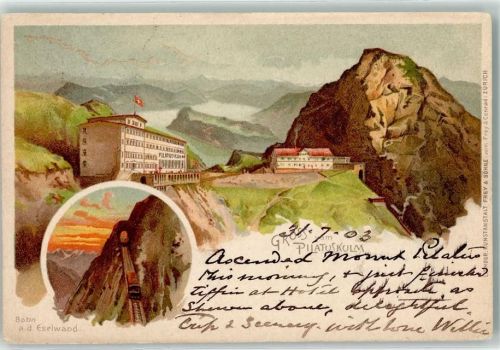 PILATUSKULM
Gruss vom
PILATUSKULM
31.7.03
Ascended Mount Pilatus
this morning, & just finished
tiffin at Hotel opposite as
shown above, delightful
trip & Scenery. with love Willie
Bahn
a.d. Eselwand.
KUNSTANSTALT FREY & SÖHNE vorm. Frey & Conrad, ZÜRICH